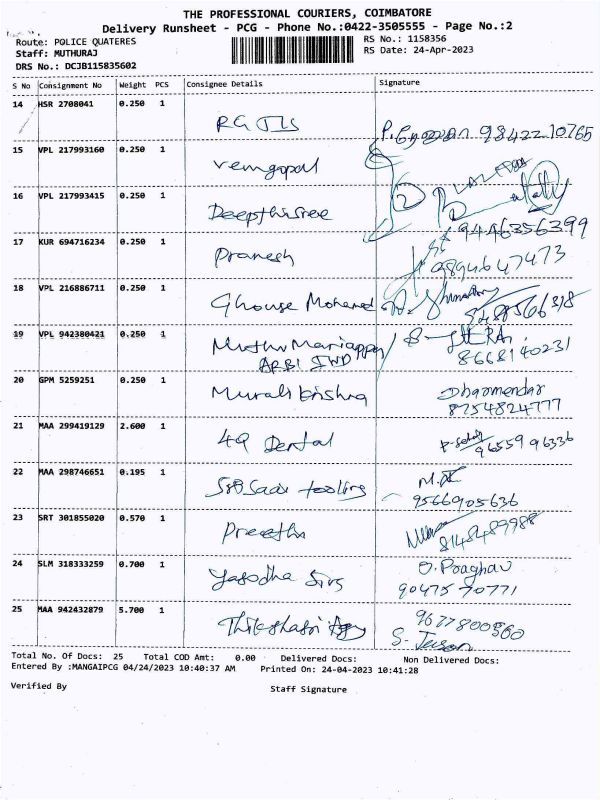 THE PROFESSIONAL COURIERS, COIMBATORE
Delivery Runsheet - PCG - Phone No.:0422-3505555 - Page No.:2
Route: POLICE QUATERES
RS No.: 1158356
Staff: MUTHURAJ
RS Date: 24-Apr-2023
DRS No.: DCJB115835602
S No Consignment No Weight PCS Consignee Details Signature
14 HSR 2708041 0.250 1
9842210765
15 VPL 217993160 0.250 1
Venugopal
16 VPL 217993415 0.250 1
Deepthisree
9446356399
17 KUR 694716234 0.250 1
Pranesh 9894647473
18 VPL 216886711 0.250 1
Ghouse Mohamed
19 VPL 942380421 0.250 1
Muthu Mariappan
8668140231
20 GPM 5259251 0.250 1
Murali krishna Dharmendar
8754824777
21 MAA 299419129 2.600 1
4Q Dental 9655996336
22 MAA 298746651 0.195 1
tooling 9566905636
23 SRT 301855020 0.570 1
Preetha 8148489988
24 SLM 318333259 0.700 1
Yasodha
9047570771
25 MAA 942432879 5.700 1
9677800560
Total No. Of Docs: 25 Total COD Amt: 0.00 Delivered Docs: Non Delivered Docs:
Entered By :MANGAIPCG 04/24/2023 10:40:37 AM Printed On: 24-04-2023 10:41:28
Verified By Staff Signature